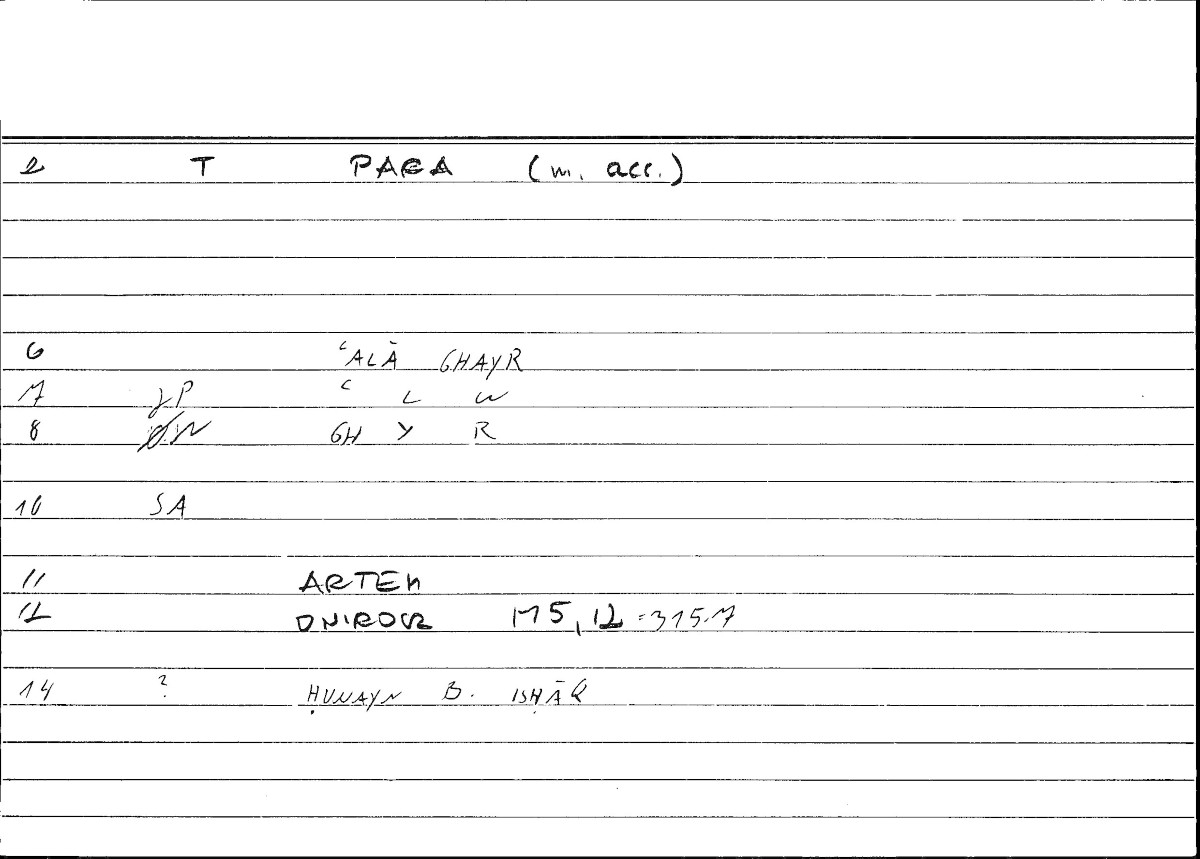 2 T PARA (m. acc.)
6 ʿALĀ GHAYR
7 JP ʿ L W
8 GH Y R
10 SA
11 ARTEM
12 ONIROCR 175,12 = 315.7
14 ? ḤUNAYN B. ISḤĀQ